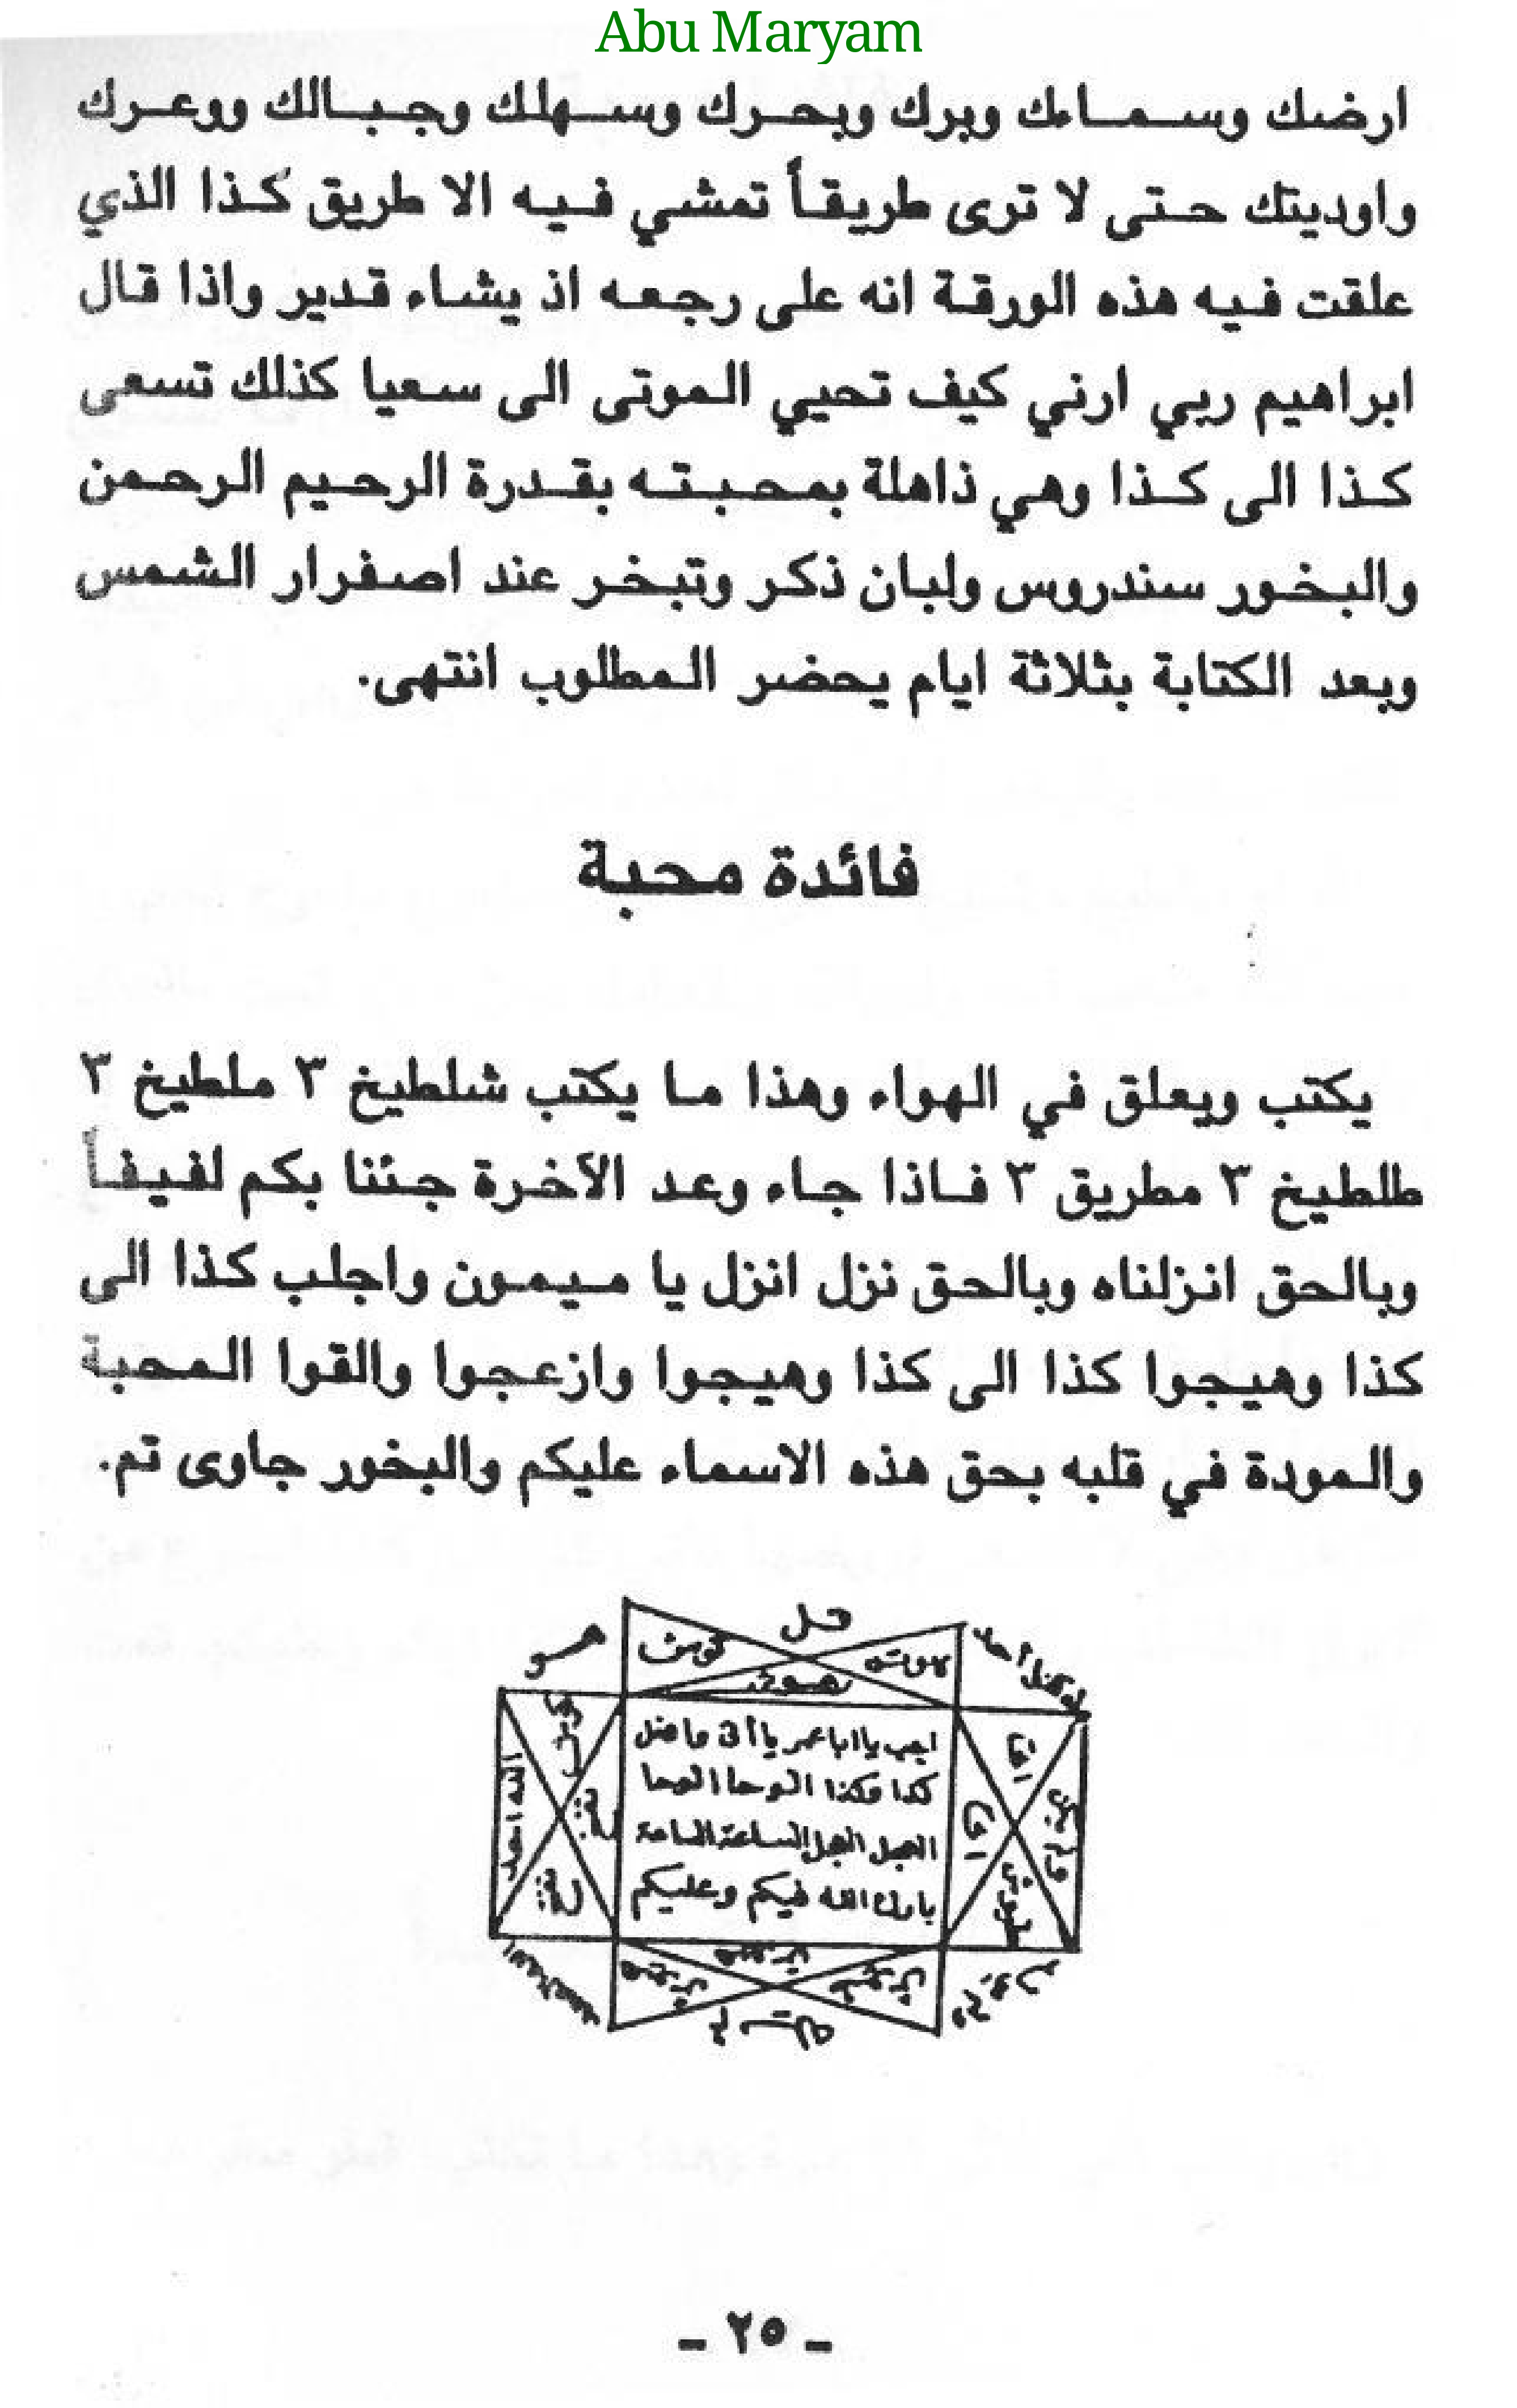 Abu Maryam
ارضك وسماءك وبرك وبحرك وسهلك وجبالك ووعرك
واوديتك حتى لا ترى طريقاً تمشي فيه الا طريق كذا الذي
علقت فيه هذه الورقة انه على رجعه اذ يشاء قدير واذا قال
ابراهيم ربي ارني كيف تحيي الموتى الى سعيا كذلك تسعى
كذا الى كذا وهي ذاهلة بمحبته بقدرة الرحيم الرحمن
والبخور سندروس ولبان ذكر وتبخر عند اصفرار الشمس
وبعد الكتابة بثلاثة ايام يحضر المطلوب انتهى.
فائدة محبة
يكتب ويعلق في الهواء وهذا ما يكتب شلطيخ ٣ ملطيخ ٣
طلطيخ ٣ مطريق ٣ فاذا جاء وعد الآخرة جئنا بكم لفيفاً
وبالحق انزلناه وبالحق نزل انزل يا ميمون واجلب كذا الى
كذا وهيجوا كذا الى كذا وهيجوا وازعجوا والقوا المحبة
والمودة في قلبه بحق هذه الاسماء عليكم والبخور جاوى تم.
قل
هو
الله احد
اجب يا ابا عمر يا
كذا وكذا الوحا الوحا
العجل العجل الساعة الساعة
بارك الله فيكم وعليكم
- ٢٥ -